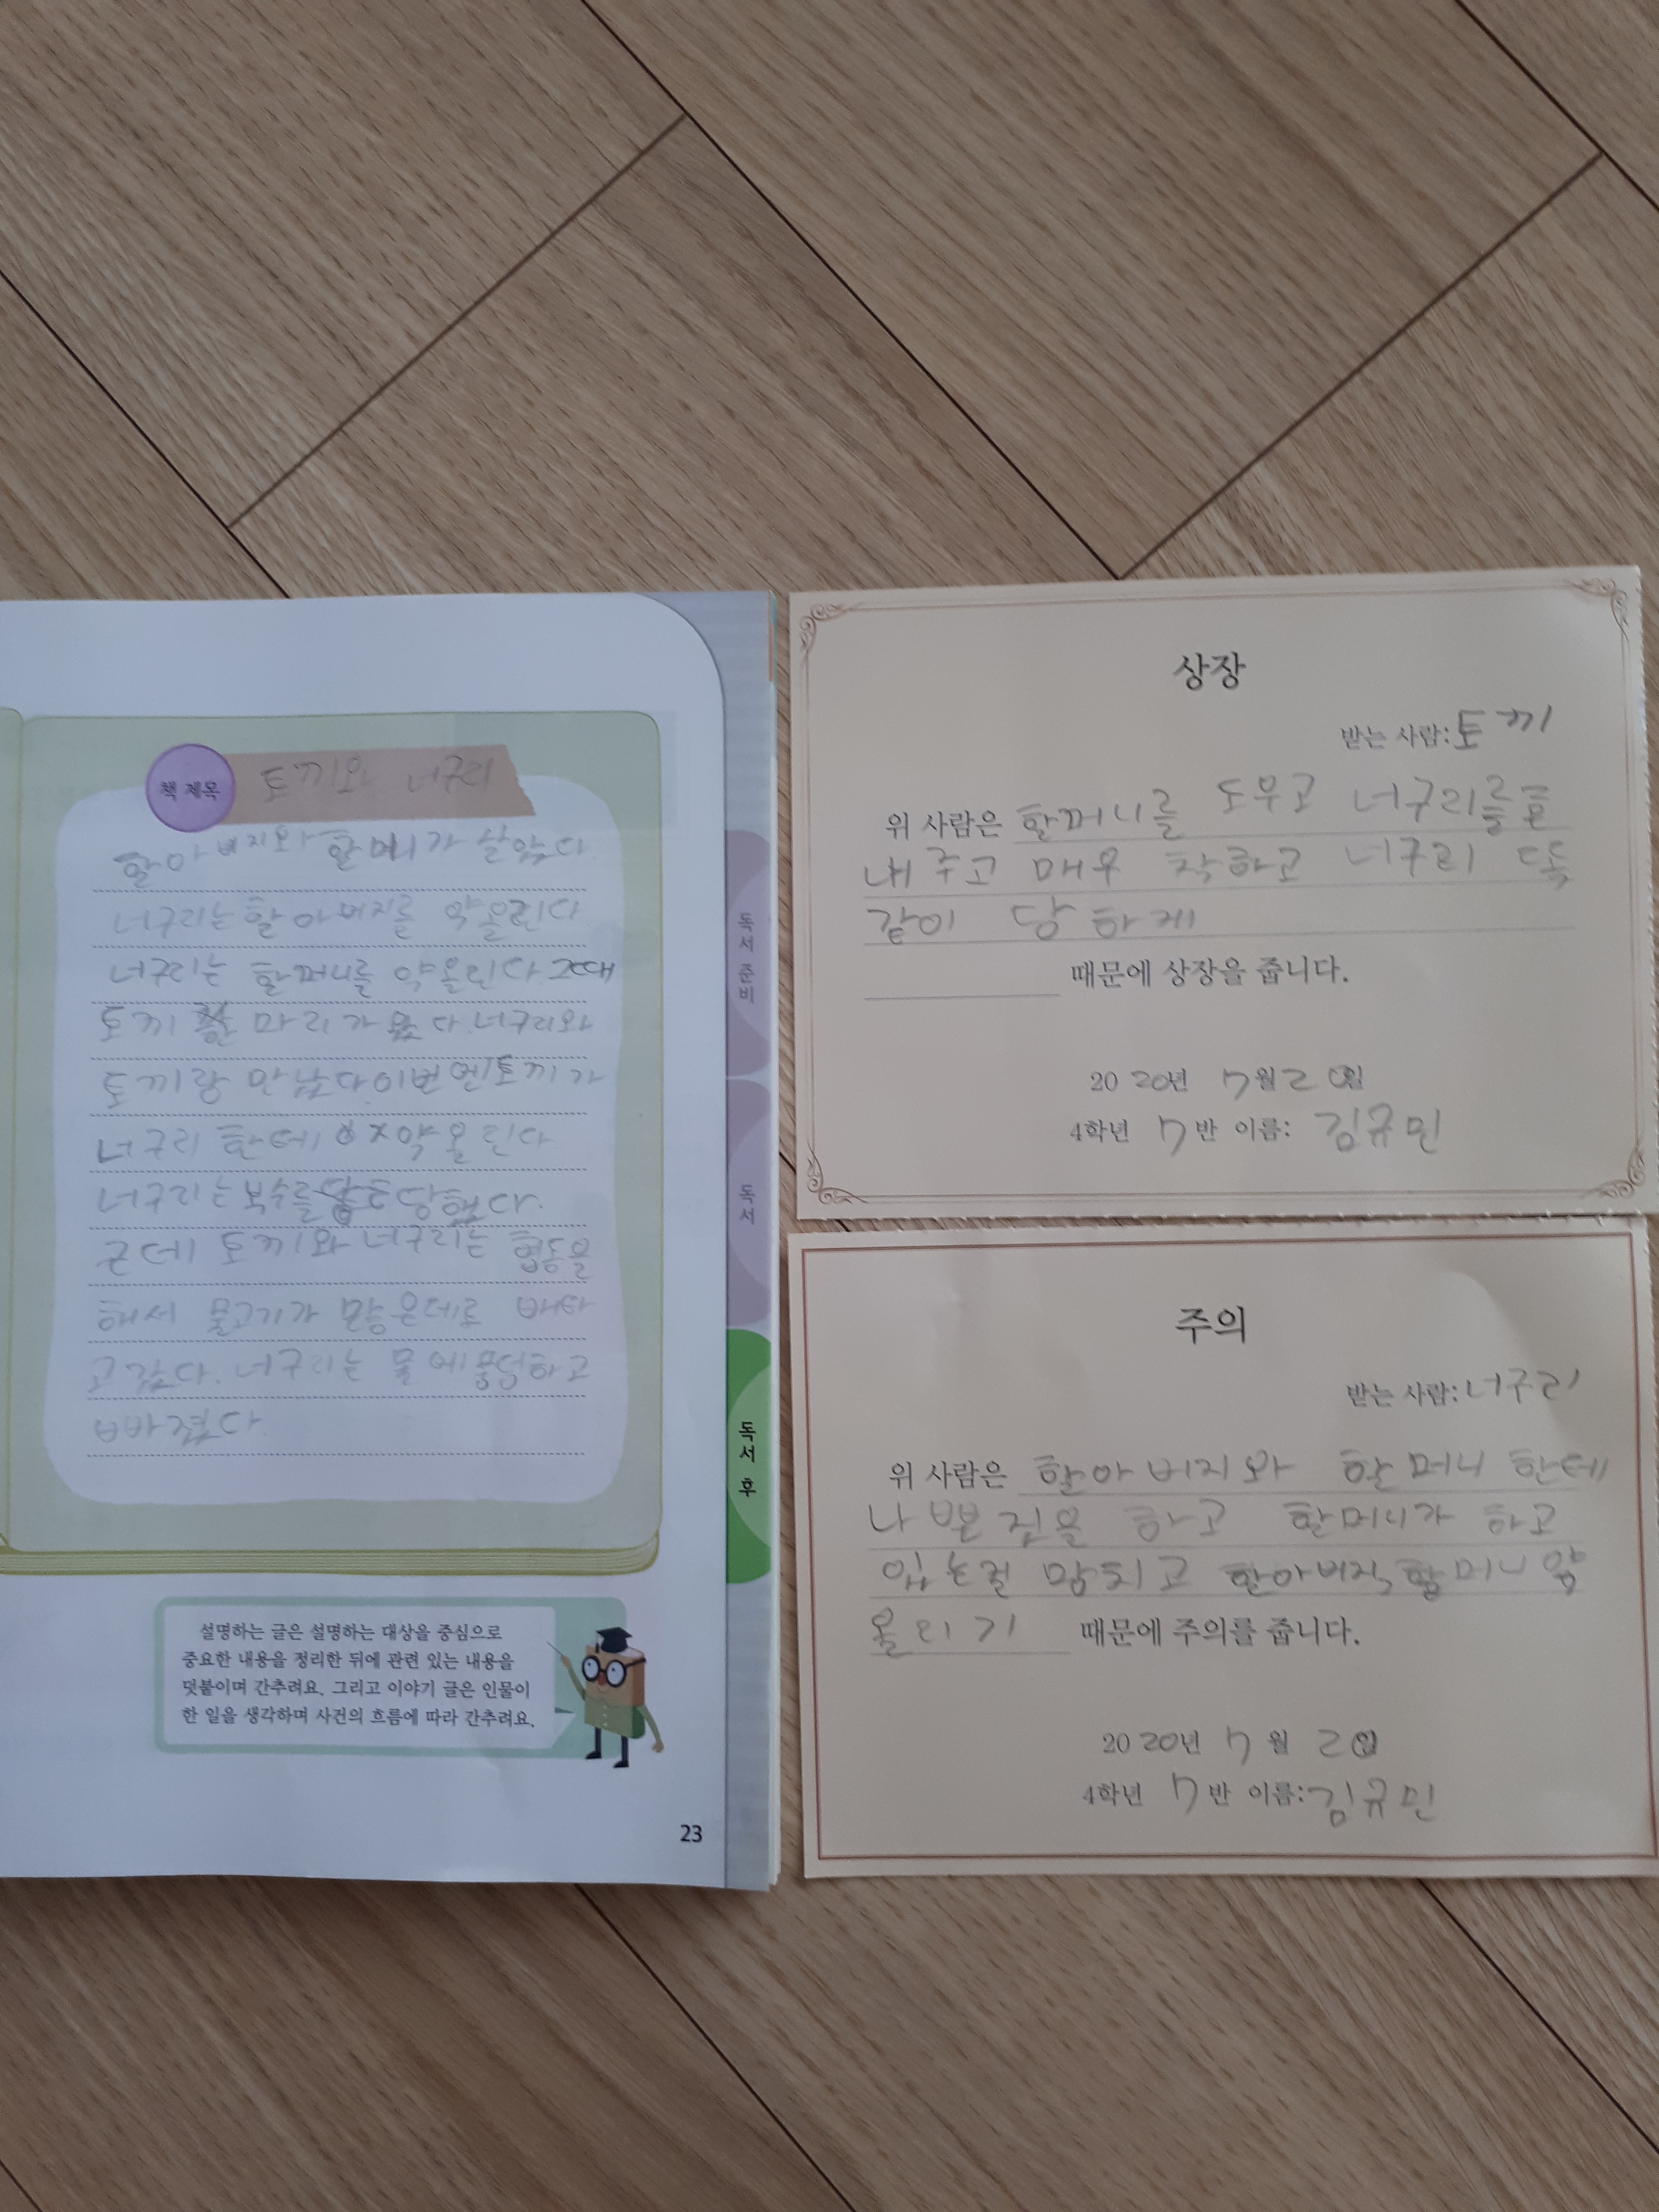 책 제목 토끼와 너구리
할아버지와 할머니가 살았다.
너구리는 할아버지를 약올린다.
너구리는 할머니를 약올린다. 그때
토끼 한 마리가 왔다. 너구리와
토끼랑 만났다. 이번엔 토끼가
너구리 한테 약올린다
너구리는 복수를 당했다.
근데 토끼와 너구리는 협동을
해서 물고기가 많은데로 배타
고 갔다. 너구리는 물에 풍덩하고
빠졌다.
독서 준비
독서
독서 후
설명하는 글은 설명하는 대상을 중심으로
중요한 내용을 정리한 뒤에 관련 있는 내용을
덧붙이며 간추려요. 그리고 이야기 글은 인물이
한 일을 생각하며 사건의 흐름에 따라 간추려요.
23
상장
받는 사람: 토끼
위 사람은 할머니를 도우고 너구리를 혼
내주고 매우 착하고 너구리 똑
같이 당하게
때문에 상장을 줍니다.
2020년 7월 2일
4학년 7반 이름: 김규민
주의
받는 사람: 너구리
위 사람은 할아버지와 할머니 한테
나쁜 짓을 하고 할머니가 하고
있는걸 망치고 할아버지, 할머니 약
올리기 때문에 주의를 줍니다.
2020년 7월 2일
4학년 7반 이름: 김규민